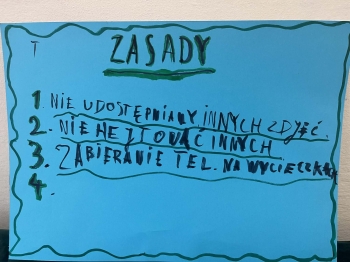 T
ZASADY
1. NIE UDOSTĘPNIAMY INNYCH ZDJĘĆ.
2. NIE HEJTOWAĆ INNYCH
3. ZABIERANIE TEL. NA WYCIECZKACH
4.